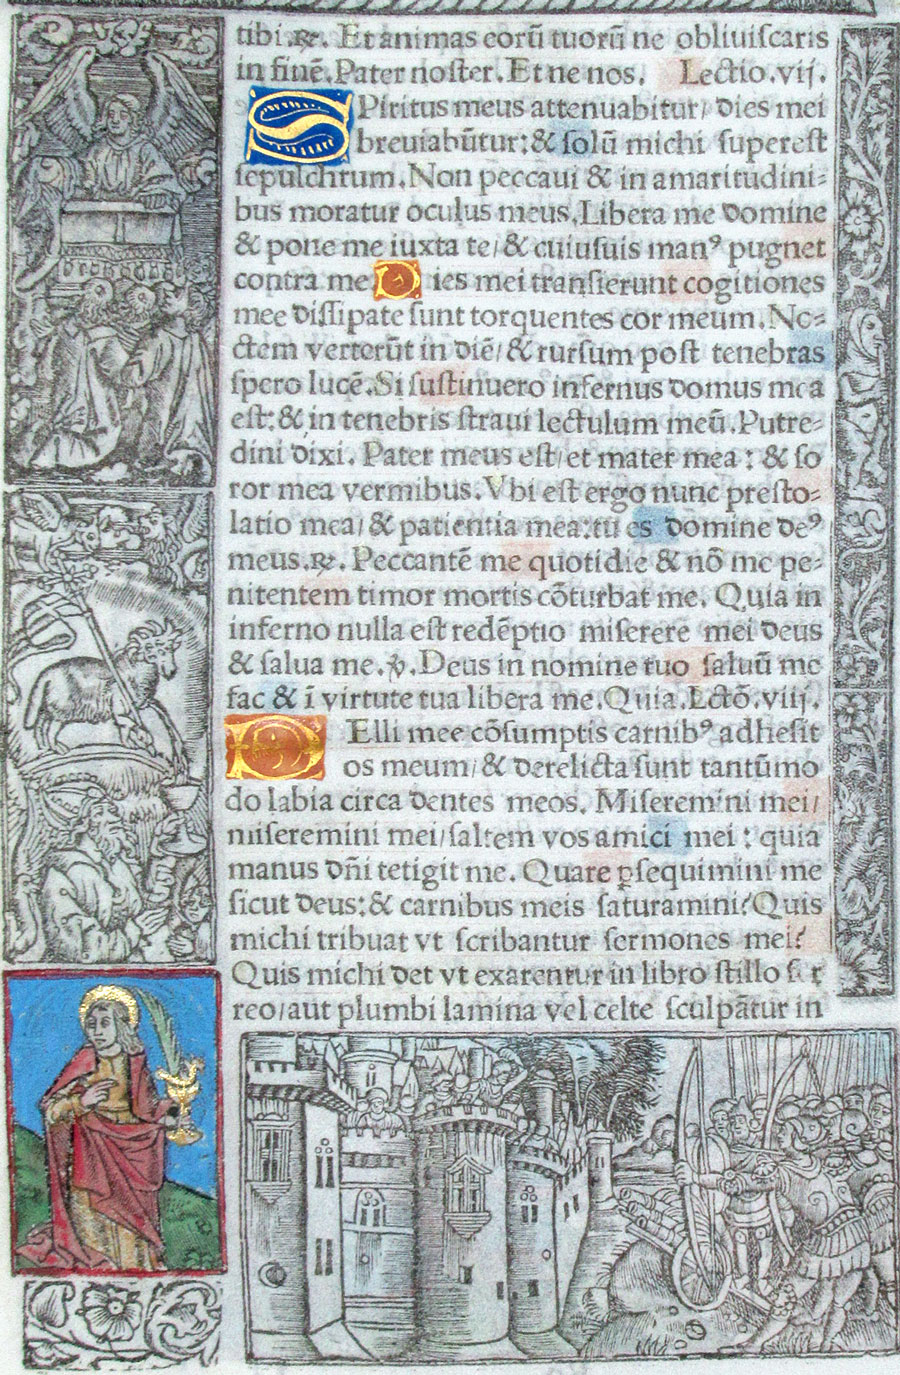 tibi.℞. Et animas eorū tuorū ne obliuiscaris
in finē. Pater noster. Et ne nos. Lectio.vij.
SPiritus meus attenuabitur/ dies mei
breuiabūtur: & solū michi superest
sepulchrum. Non peccaui & in amaritudini⸗
bus moratur oculus meus. Libera me domine
& pone me iuxta te/ & cuiusuis manꝰ pugnet
contra me Dies mei transierunt cogitiones
mee dissipate sunt torquentes cor meum. No⸗
ctem verterūt in diē/ & rursum post tenebras
spero lucē. Si sustinuero infernus domus mea
est: & in tenebris straui lectulum meū. Putre⸗
dini dixi. Pater meus est/ et mater mea: & so
ror mea vermibus. Vbi est ergo nunc presto⸗
latio mea/ & patientia mea: tu es domine deꝰ
meus.℞. Peccantē me quotidie & nō me pe⸗
nitentem timor mortis cōturbat me. Quia in
inferno nulla est redēptio miserere mei deus
& salua me. ℣. Deus in nomine tuo saluū me
fac & ī virtute tua libera me. Quia. Lectō. viij.
PElli mee cōsumptis carnibꝰ adhesit
os meum/ & derelicta sunt tantūmo
do labia circa dentes meos. Miseremini mei/
miseremini mei/ saltem vos amici mei: quia
manus dñi tetigit me. Quare ꝑsequimini me
sicut deus: & carnibus meis saturamini? Quis
michi tribuat vt scribantur sermones mei?
Quis michi det vt exarentur in libro stillo fer
reo/ aut plumbi lamina vel celte sculpātur in